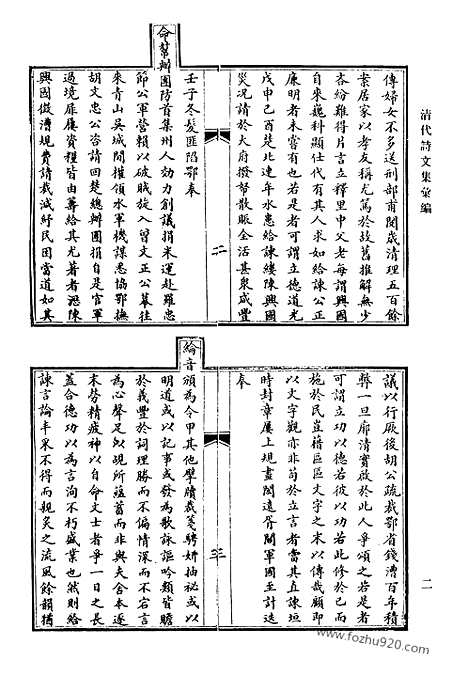 清代詩文集彙編
傳婦女不多送刑部甫閱歲清理五百餘
案居家以孝友稱尤篤於故舊推解無少
吝紛難得片言立釋里中父老每謂興國
自來甄科顯仕代有其人求如給諫公正
廉明者未嘗有也若是者可謂立德道光
戊申己酉楚北連年水患給諫縷陳興國
災況請於大府撥帑散賑全活甚眾咸豐
二
壬子冬髮匪陷鄂奉
命幫辦團防首集州人効力創議捐米運赴羅忠
節公軍營賴以破賊旋入曾文正公幕往
來青山吳城間権領水軍機謀悉協鄂撫
胡文忠公咨請回楚總辦團捐自是官軍
過境扉屨資糧皆由籌給其尤著者憑陳
興國徵漕規費請裁減紓民困當道如其
議以行厥後胡公疏裁鄂省錢漕百年積
弊一旦廓清實啟於此人爭頌之若是者
可謂立功以德若彼以功若此修於己而
施於民豈藉區區文字之末以傳哉顧即
以文字觀亦非苟於立言者當其直諫垣
時封章屢上規畫閎遠胥關軍國至計迭
奉
三
綸音頒為令甲其他擘牋裁箋騁妍抽祕或以
明道或以記事或發為歌詠謳吟類皆贍
於義豐於詞理勝而不偏情深而不宕言
為心聲足以覘所蘊蓄而非與夫舍本逐
末勞精疲神以自命文士者爭一日之長
蓋合德功以為言洵不朽盛業也然則給
諫言論丰采不得而親炙之流風餘韻猶
二
www.fozhu920.com